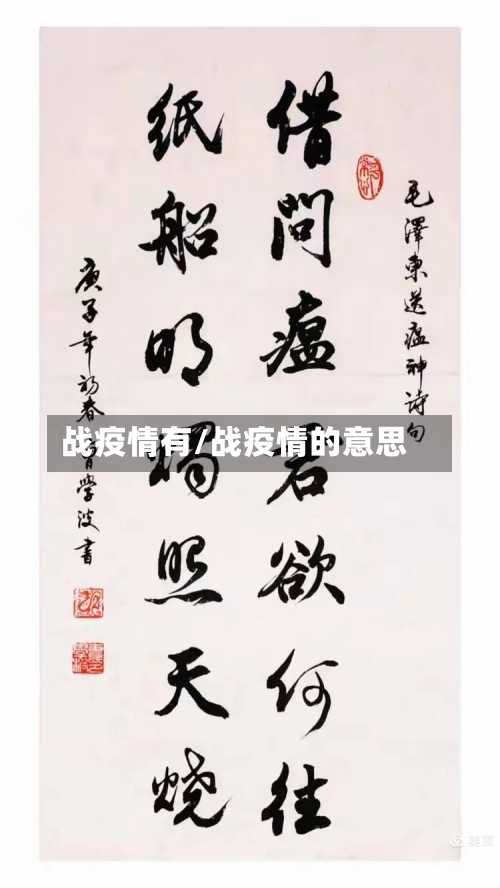 毛澤東送瘟神詩句
借問瘟君欲何往
紙船明燭照天燒
庚子年初春學波書
战疫情有/战疫情的意思
美篇